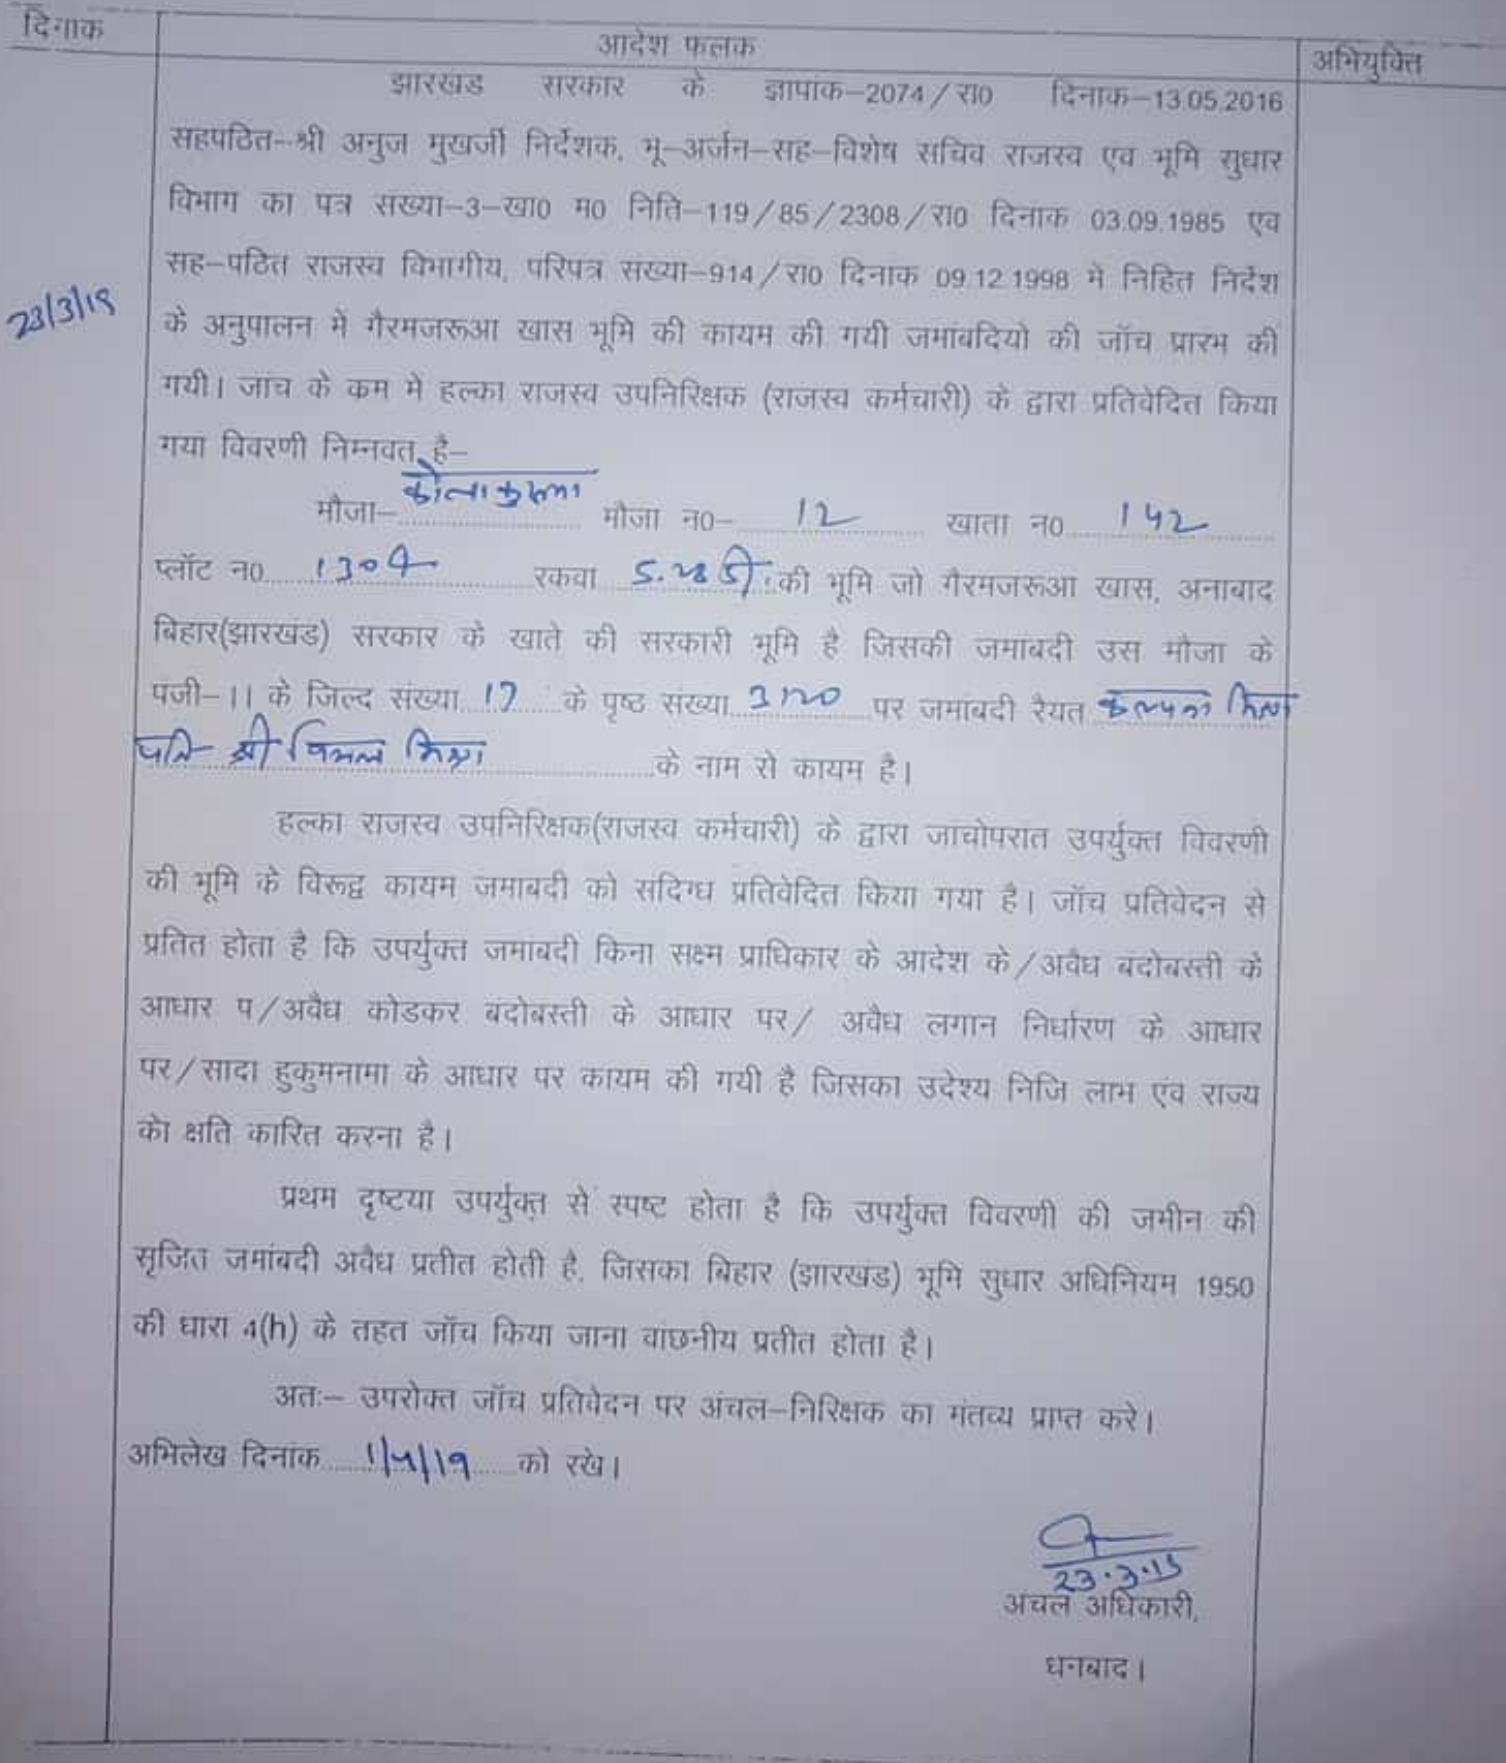 दिनाक
आदेश फलक
अभियुक्ति
झारखंड सरकार के ज्ञापांक-2074/रा0 दिनाक-13.05.2016
सहपठित--श्री अनुज मुखर्जी निर्देशक, भू-अर्जन-सह-विशेष सचिव राजस्व एव भूमि सुधार
विभाग का पत्र सख्या-3-खा0 म0 निति-119/85/2308/रा0 दिनाक 03.09.1985 एव
सह-पठित राजस्व विभागीय, परिपत्र संख्या-914/रा0 दिनाक 09.12.1998 मे निहित निर्देश
23/3/19
के अनुपालन मे गैरमजरूआ खास भूमि की कायम की गयी जमांबदियो की जॉच प्रारभ की
गयी। जांच के कम मे हल्का राजस्व उपनिरिक्षक (राजस्व कर्मचारी) के द्वारा प्रतिवेदित किया
गया विवरणी निम्नवत् है-
मौजा- मौजा न0- 12 खाता न0 142
प्लॉट न0 रकवा की भूमि जो गैरमजरूआ खास, अनाबाद
बिहार(झारखंड) सरकार के खाते की सरकारी भूमि है जिसकी जमांबदी उस मौजा के
पजी-।। के जिल्द संख्या 17 के पृष्ठ संख्या पर जमांबदी रैयत कल्पना मिश्रा
पति श्री विमल मिश्रा के नाम से कायम है।
हल्का राजस्व उपनिरिक्षक(राजस्व कर्मचारी) के द्वारा जांचोपरांत उपर्युक्त विवरणी
की भूमि के विरूद्व कायम जमाबदी को सदिग्ध प्रतिवेदित किया गया है। जॉच प्रतिवेदन से
प्रतित होता है कि उपर्युक्त जमांबदी किना सक्ष्म प्राधिकार के आदेश के/अवैध बदोबस्ती के
आधार प/अवैध कोडकर बंदोबस्ती के आधार पर/ अवैध लगान निर्धारण के आधार
पर/सादा हुकुमनामा के आधार पर कायम की गयी है जिसका उदेश्य निजि लाभ एंव राज्य
को क्षति कारित करना है।
प्रथम दृष्टया उपर्युक्त से स्पष्ट होता है कि उपर्युक्त विवरणी की जमीन की
सृजित जमांबदी अवैध प्रतीत होती है, जिसका बिहार (झारखंड) भूमि सुधार अधिनियम 1950
की धारा 4(h) के तहत जॉच किया जाना वाछनीय प्रतीत होता है।
अतः- उपरोक्त जॉच प्रतिवेदन पर अंचल-निरिक्षक का मंतव्य प्राप्त करे।
अभिलेख दिनांक 1/4/19 को रखे।
23.3.19
अंचल अधिकारी,
धनबाद।